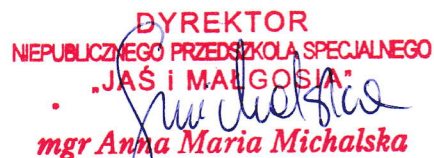 DYREKTOR
NIEPUBLICZNEGO PRZEDSZKOLA SPECJALNEGO
"JAŚ i MAŁGOSIA"
mgr Anna Maria Michalska